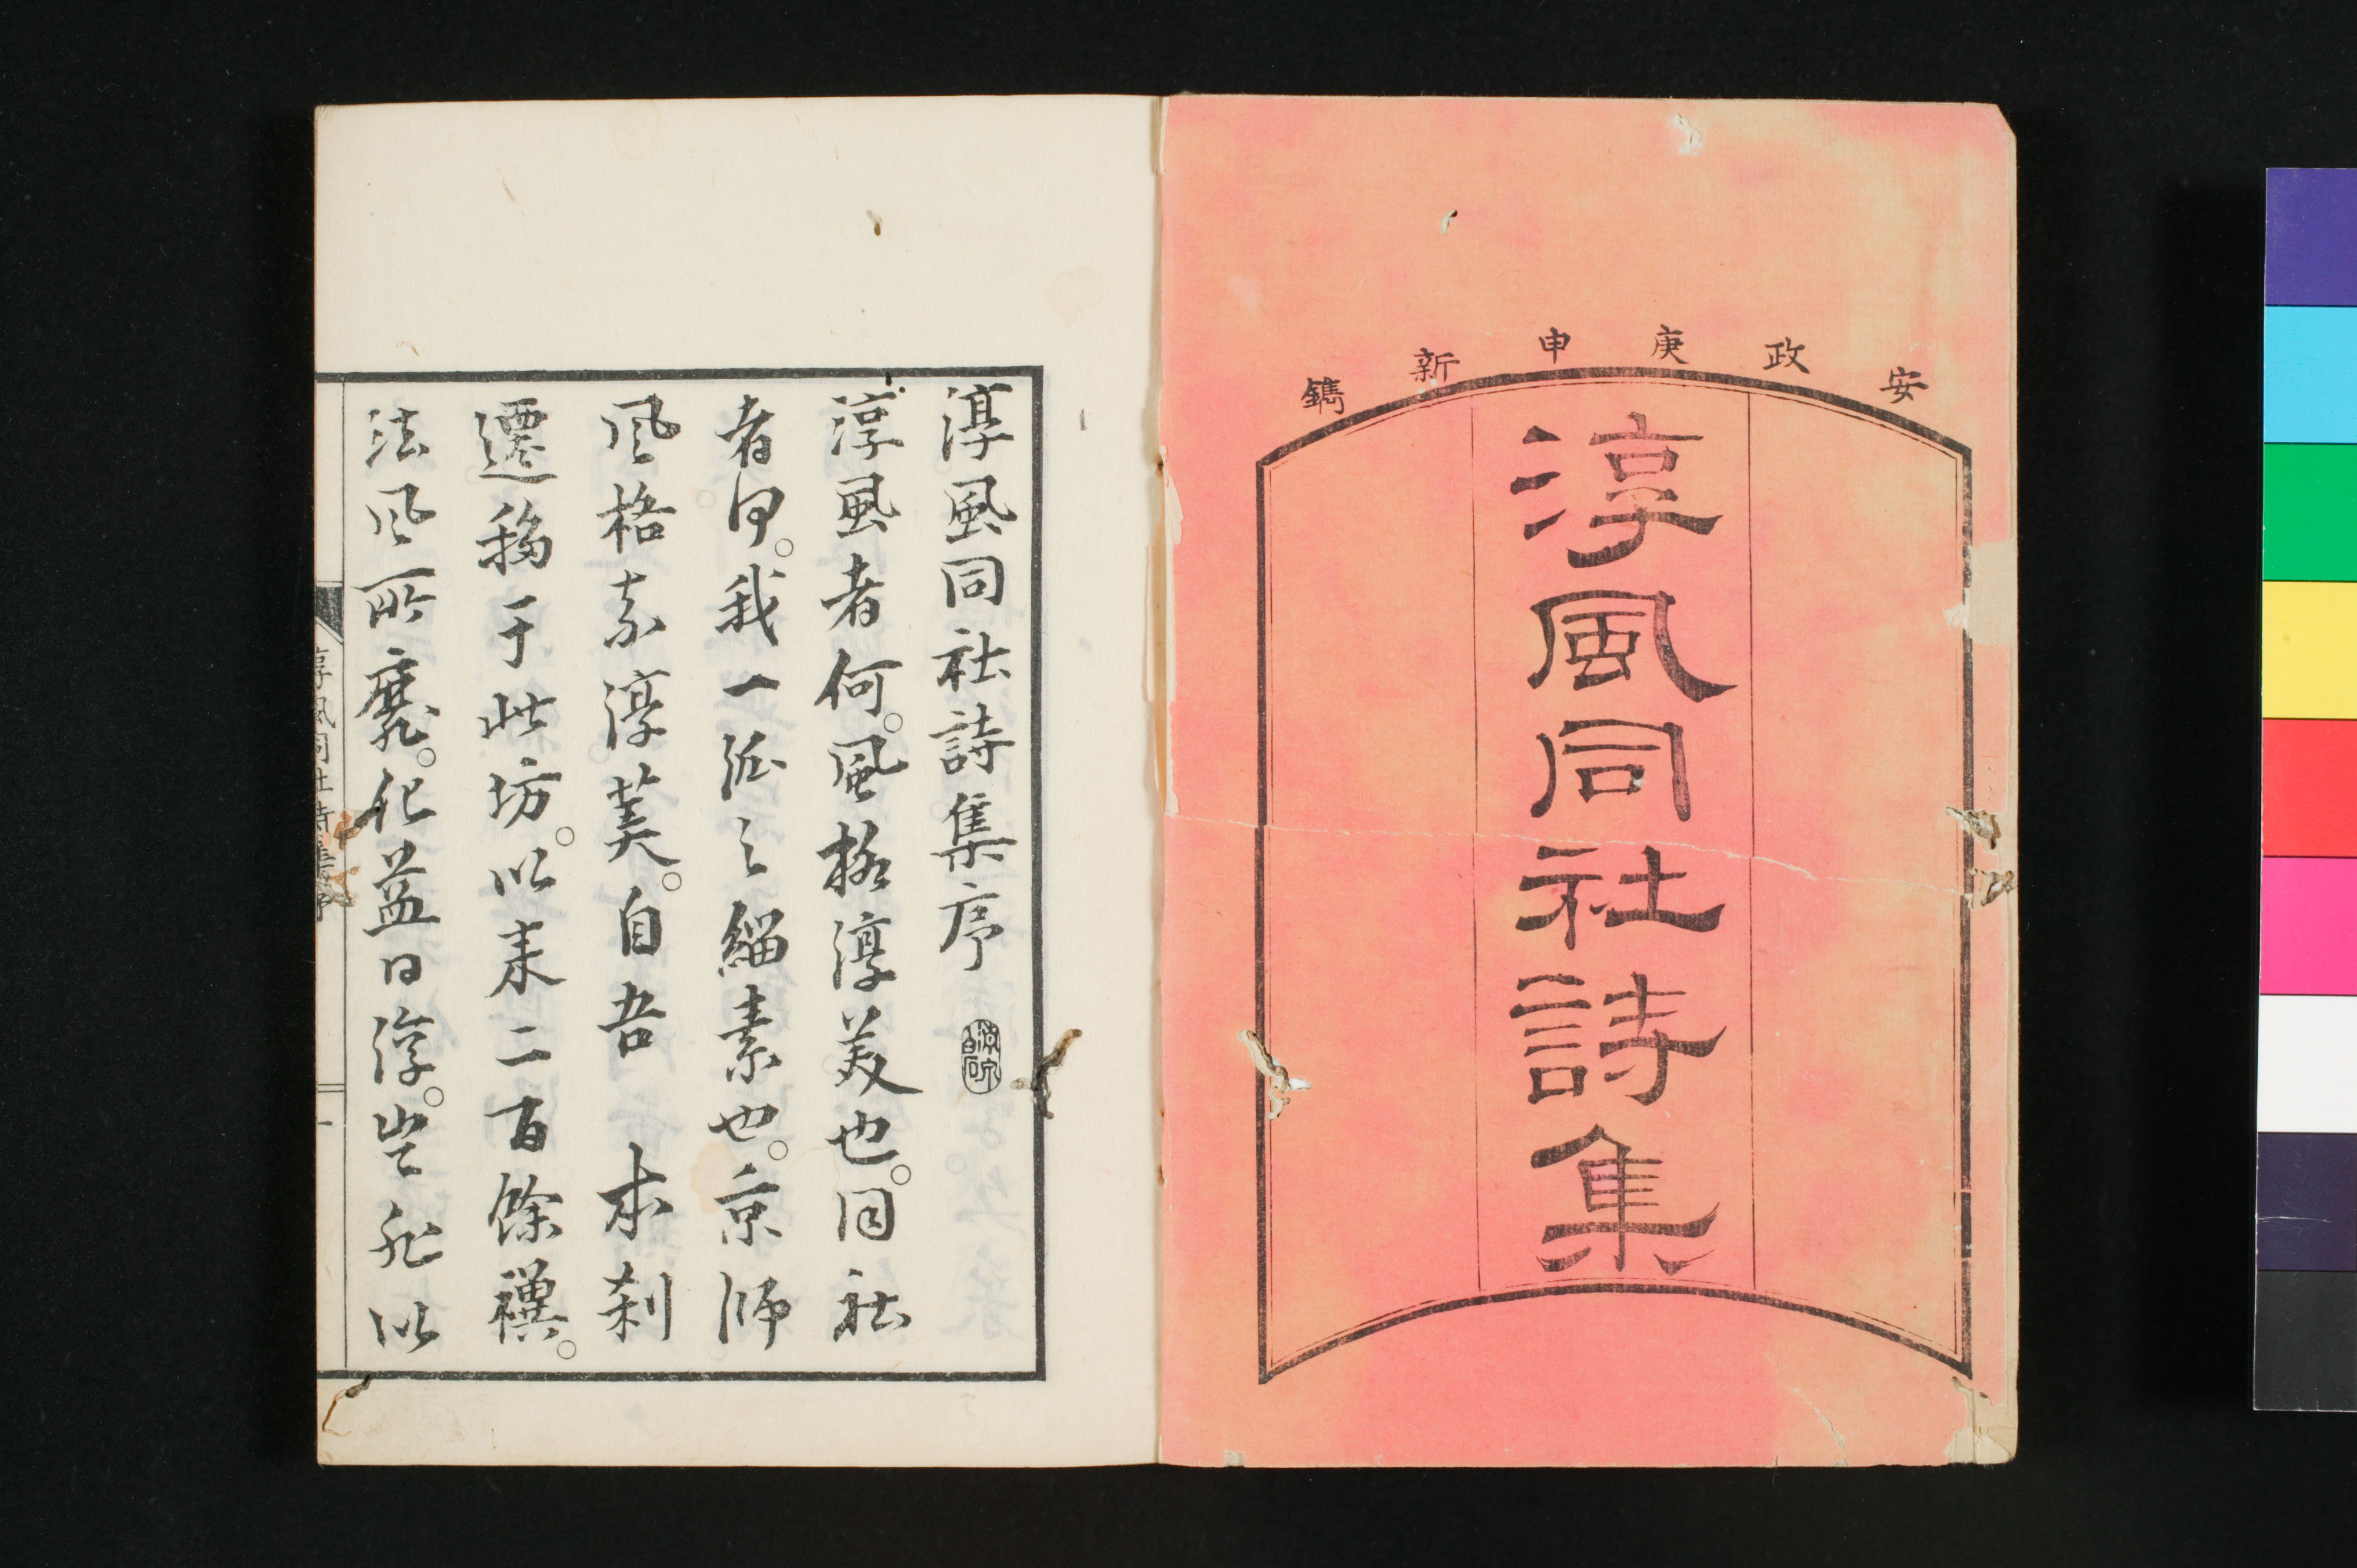 安政庚申新鐫
淳風同社詩集
淳風同社詩集序
淳風者何。風格淳美也。同社
者何。我一派之緇素也。京師
風格素淳美。自吾 本刹
遷移于此坊。以来二百餘禩。
法風所靡。化益日淳。豈非以
淳風同社詩集序
一